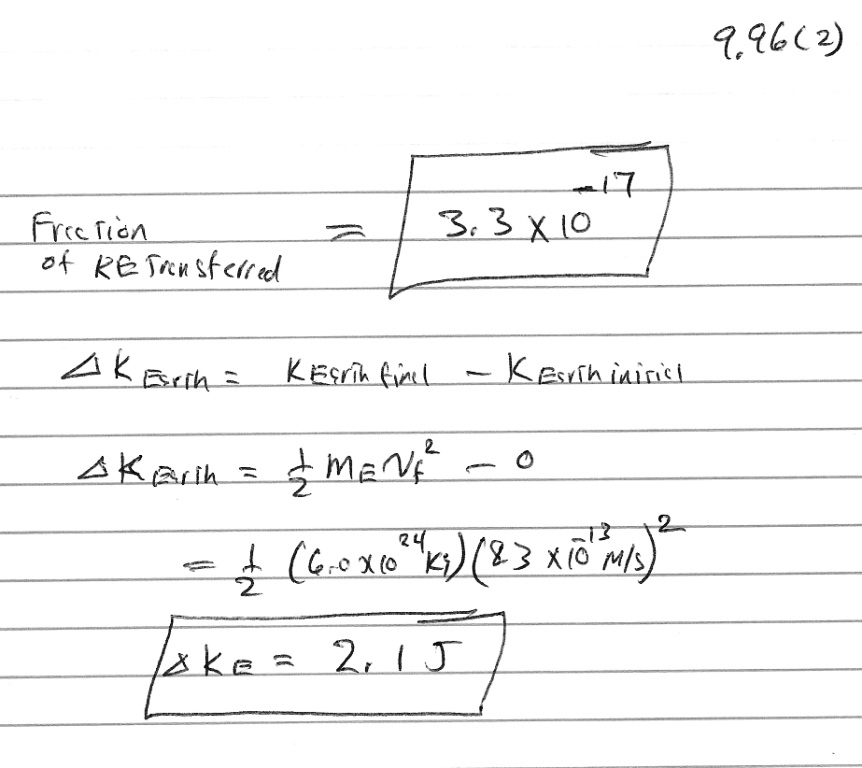 9.96(2)
Fraction = 3.3 x 10^-17
of KE Transferred
ΔK Earth = K Earth final - K Earth initial
ΔK Earth = 1/2 M_E V_f^2 - 0
= 1/2 (6.0 x 10^24 Kg)(8.3 x 10^-13 M/s)^2
ΔK_E = 2.1 J